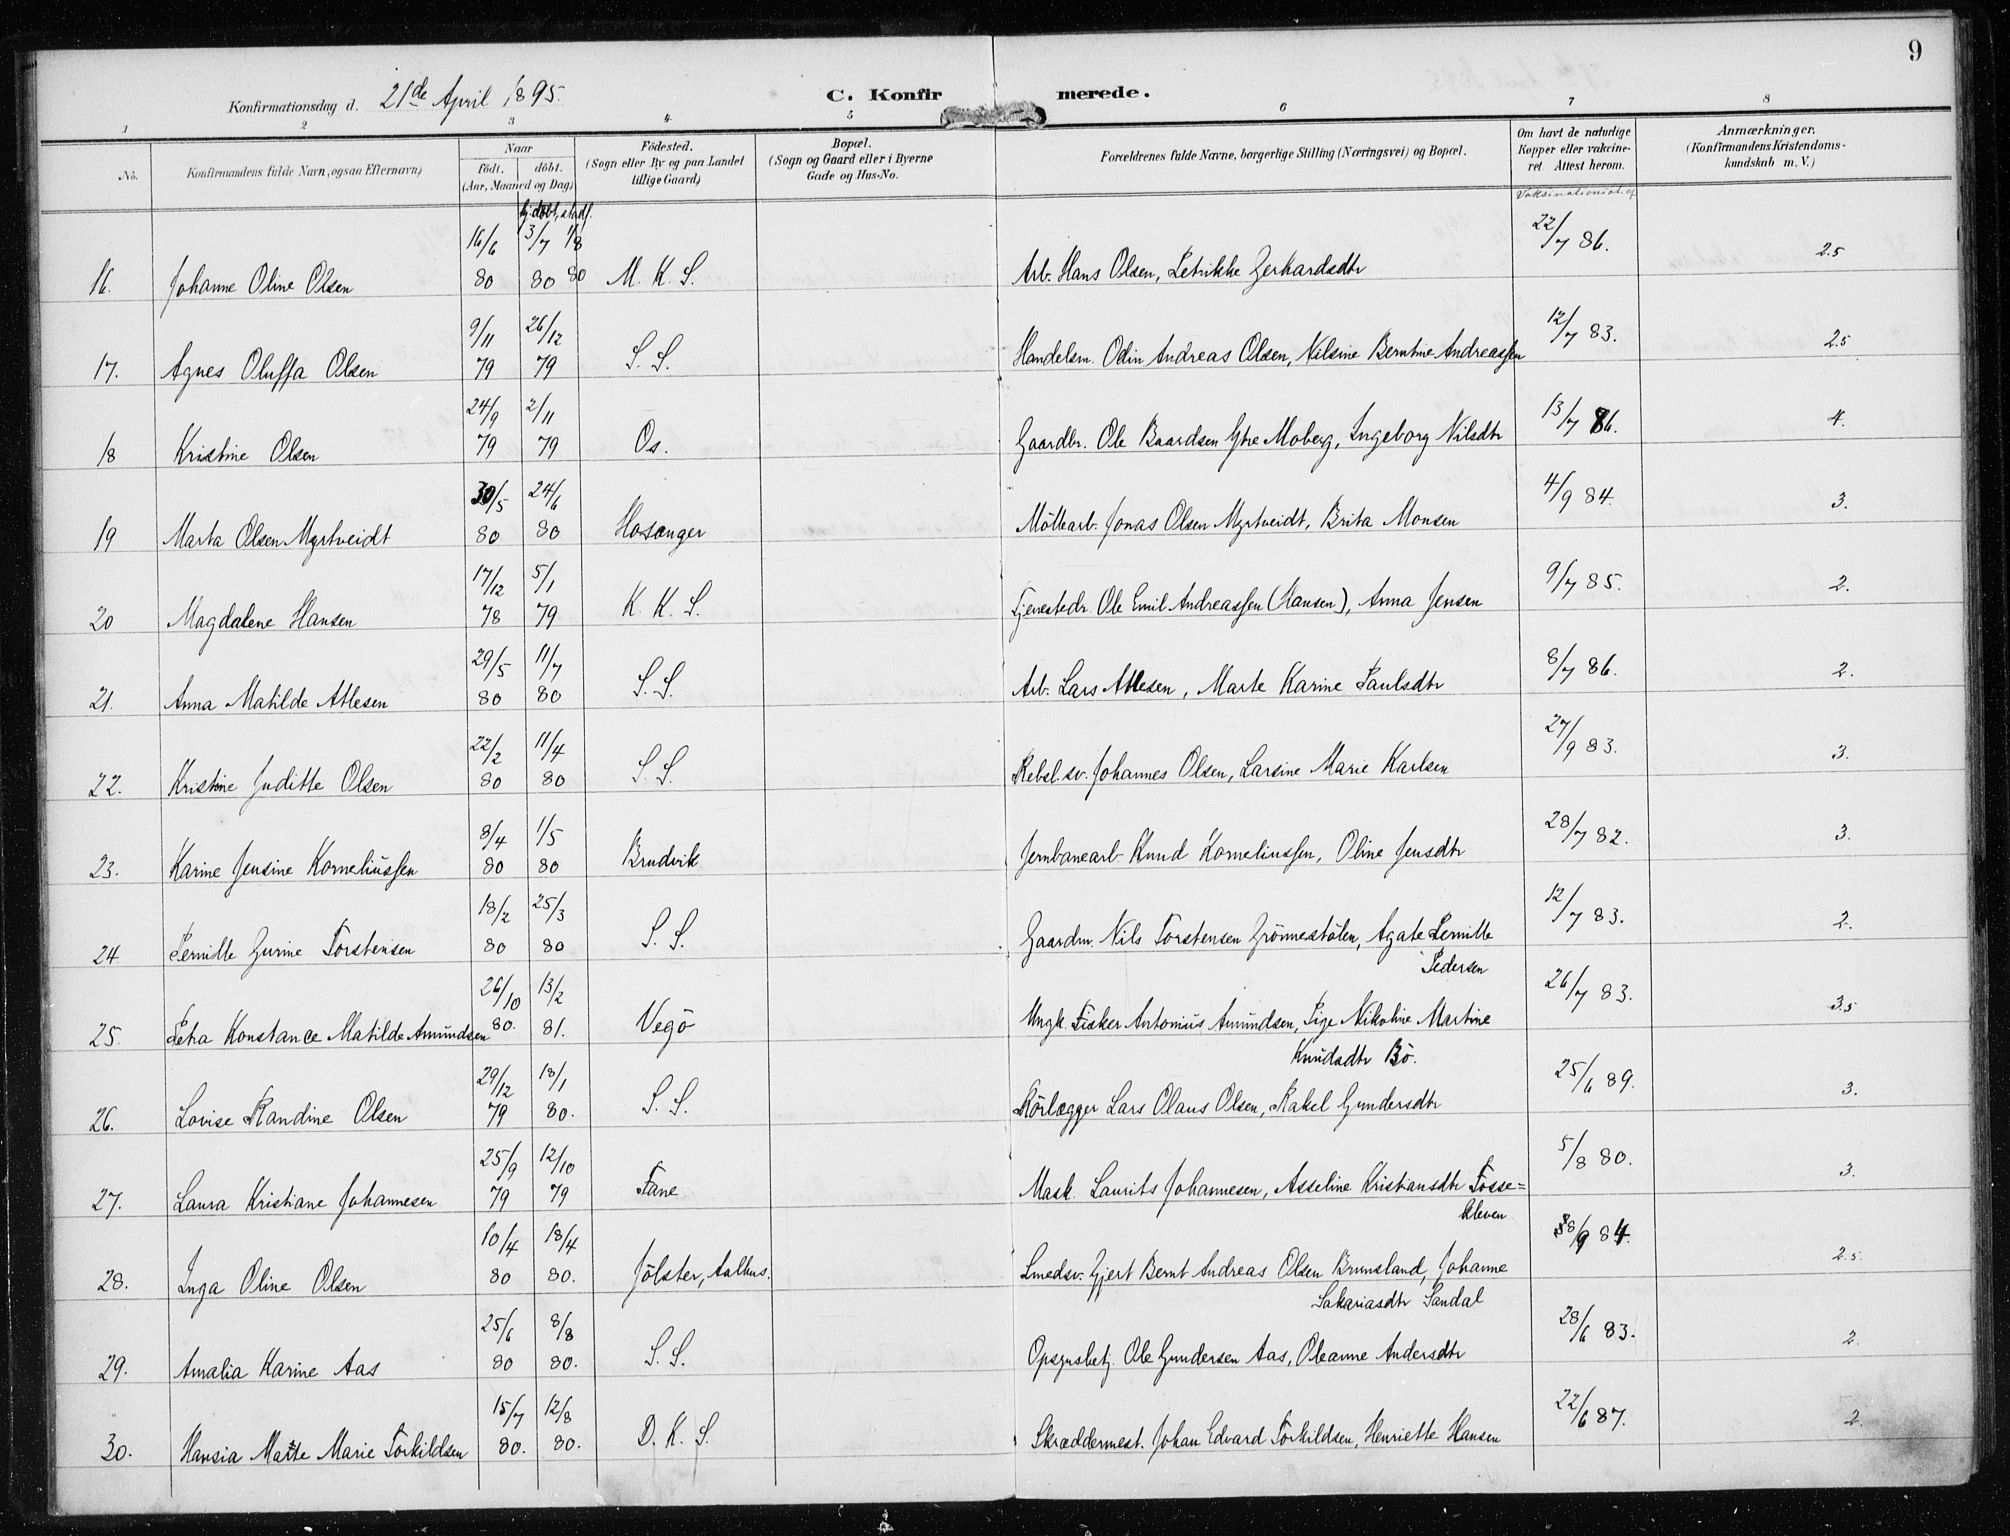 9
Konfirmationsdag d. 21de April 1895. C. Konfirmerede.
1 2 3 4 5 6 7 8
No. Konfirmandens fulde Navn, ogsaa Efternavn) Naar født. døbt. (Aar, Maaned og Dag) Fødested. (Sogn eller By og paa Landet tillige Gaard) Bopæl. (Sogn og Gaard eller i Byerne Gade og Hus-No. Forældrenes fulde Navne, borgerlige Stilling (Næringsvei) og Bopæl. Om havt de naturlige Kopper eller vakcineret Attest herom. Anmærkninger. (Konfirmandens Kristendomskundskab m. V.)
hj.döbt, stadf.
16/6 3/7 1/8 22/7 86.
16. Johanne Oline Olsen 80 80 80 M. K. S. Arb. Hans Olsen, Petrikke Gerhardsdtr 2.5
9/11 26/12 12/7 83.
17. Agnes Oluffa Olsen 79 79 S. S. Handelsm. Odin Andreas Olsen, Nilsine Berntine Andreassen 2.5
24/9 2/11 13/7 86.
18 Kristine Olsen 79 79 Os. Gaardbr. Ole Baardsen Ytre Moberg, Ingeborg Nilsdtr 4.
30/5 24/6 4/9 84.
19 Marta Olsen Myrtveidt 80 80 Hosanger Möllearb. Jonas Olsen Myrtveidt, Brita Monsen 3.
17/12 5/1 9/7 85.
20 Magdalene Hansen 78 79 K. K. S. Tjenestedr. Ole Emil Andreassen (Hansen), Anna Jensen 2.
29/5 11/7 8/7 86.
21. Anna Matilde Atlesen 80 80 S. S. Arb. Lars Atlesen, Marte Karine Paulsdtr 2.
22/2 11/4 27/9 83.
22. Kristine Juditte Olsen 80 80 S. S. Rebsl.sv. Johannes Olsen, Larsine Marie Karlsen 3.
8/4 1/5 28/7 82.
23. Karine Jensine Korneliussen 80 80 Brudvik Jernbanearb. Knud Korneliussen, Oline Jensdtr 3.
18/2 25/3 12/7 83.
24 Pernille Gurine Torstensen 80 80 S. S. Gaardm. Nils Torstensen Grönnestölen, Agate Pernille Pedersen 2.
26/10 13/2 26/7 83.
25. Petra Konstance Matilde Amundsen 80. 81. Vegö Ungk. Fisker Antonius Amundsen, Pige Nikoline Martine Knudsdtr Bö. 3.5
29/12 18/1 25/6 89.
26. Lovise Randine Olsen 79 80. S. S. Rörlægger Lars Olaus Olsen, Rakel Gundersdtr 3.
25/9 12/10 5/8 80.
27. Laura Kristiane Johannesen 79 79 Fane Mask. Laurits Johannesen, Asseline Kristiansdtr Fosse=kleven 3.
10/4 18/4 8/9 84.
28. Inga Oline Olsen 80 80. Jölster, Aalhus. Smedsv. Gjert Bernt Andreas Olsen Brunsland, Johanne Sakariasdtr Sandal 2.5
25/6 8/8 28/6 83.
29. Amalia Karine Aas 80 80. S. S. Opsynsbetj. Ole Gundersen Aas, Oleanne Andersdtr 2.
15/7 12/8 22/6 87.
30. Hansia Marte Marie Torkildsen 80. 80. D. K. S. Skræddermest. Johan Edvard Torkildsen, Henriette Hansen 2.